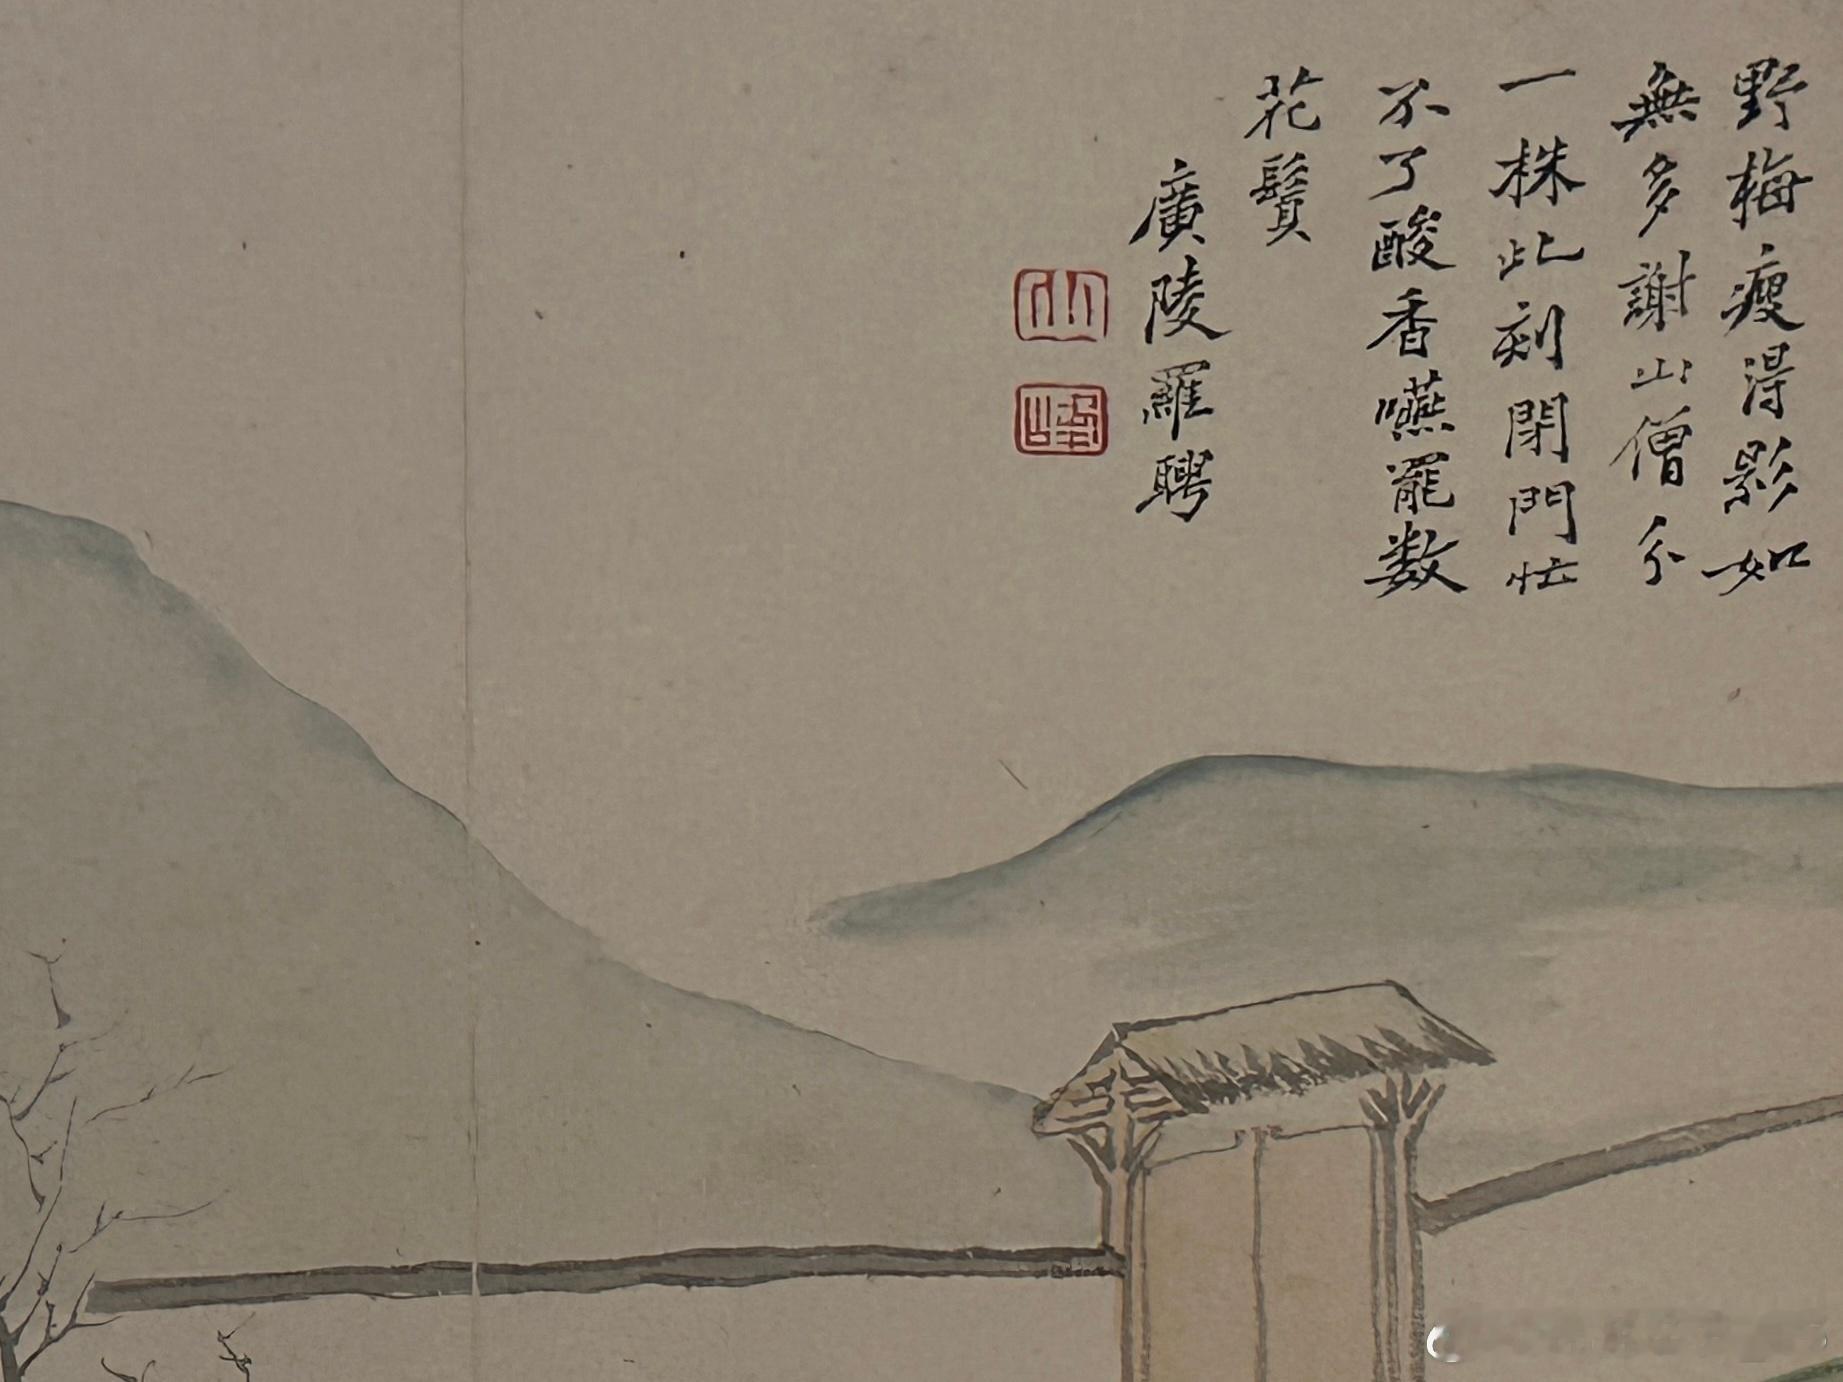 野梅瘦得影如
無多謝山僧分
一株此刻閉門忙
不了酸香嚥罷數
花鬚
廣陵羅聘